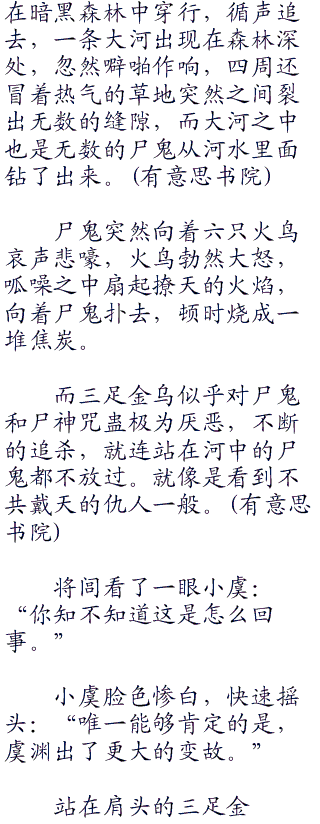 在暗黑森林中穿行，循声追
去，一条大河出现在森林深
处，忽然噼啪作响，四周还
冒着热气的草地突然之间裂
出无数的缝隙，而大河之中
也是无数的尸鬼从河水里面
钻了出来。(有意思书院)
尸鬼突然向着六只火鸟
哀声悲嚎，火鸟勃然大怒，
呱噪之中扇起撩天的火焰，
向着尸鬼扑去，顿时烧成一
堆焦炭。
而三足金乌似乎对尸鬼
和尸神咒蛊极为厌恶，不断
的追杀，就连站在河中的尸
鬼都不放过。就像是看到不
共戴天的仇人一般。(有意思
书院)
将闾看了一眼小虞：
“你知不知道这是怎么回
事。”
小虞脸色惨白，快速摇
头：“唯一能够肯定的是，
虞渊出了更大的变故。”
站在肩头的三足金